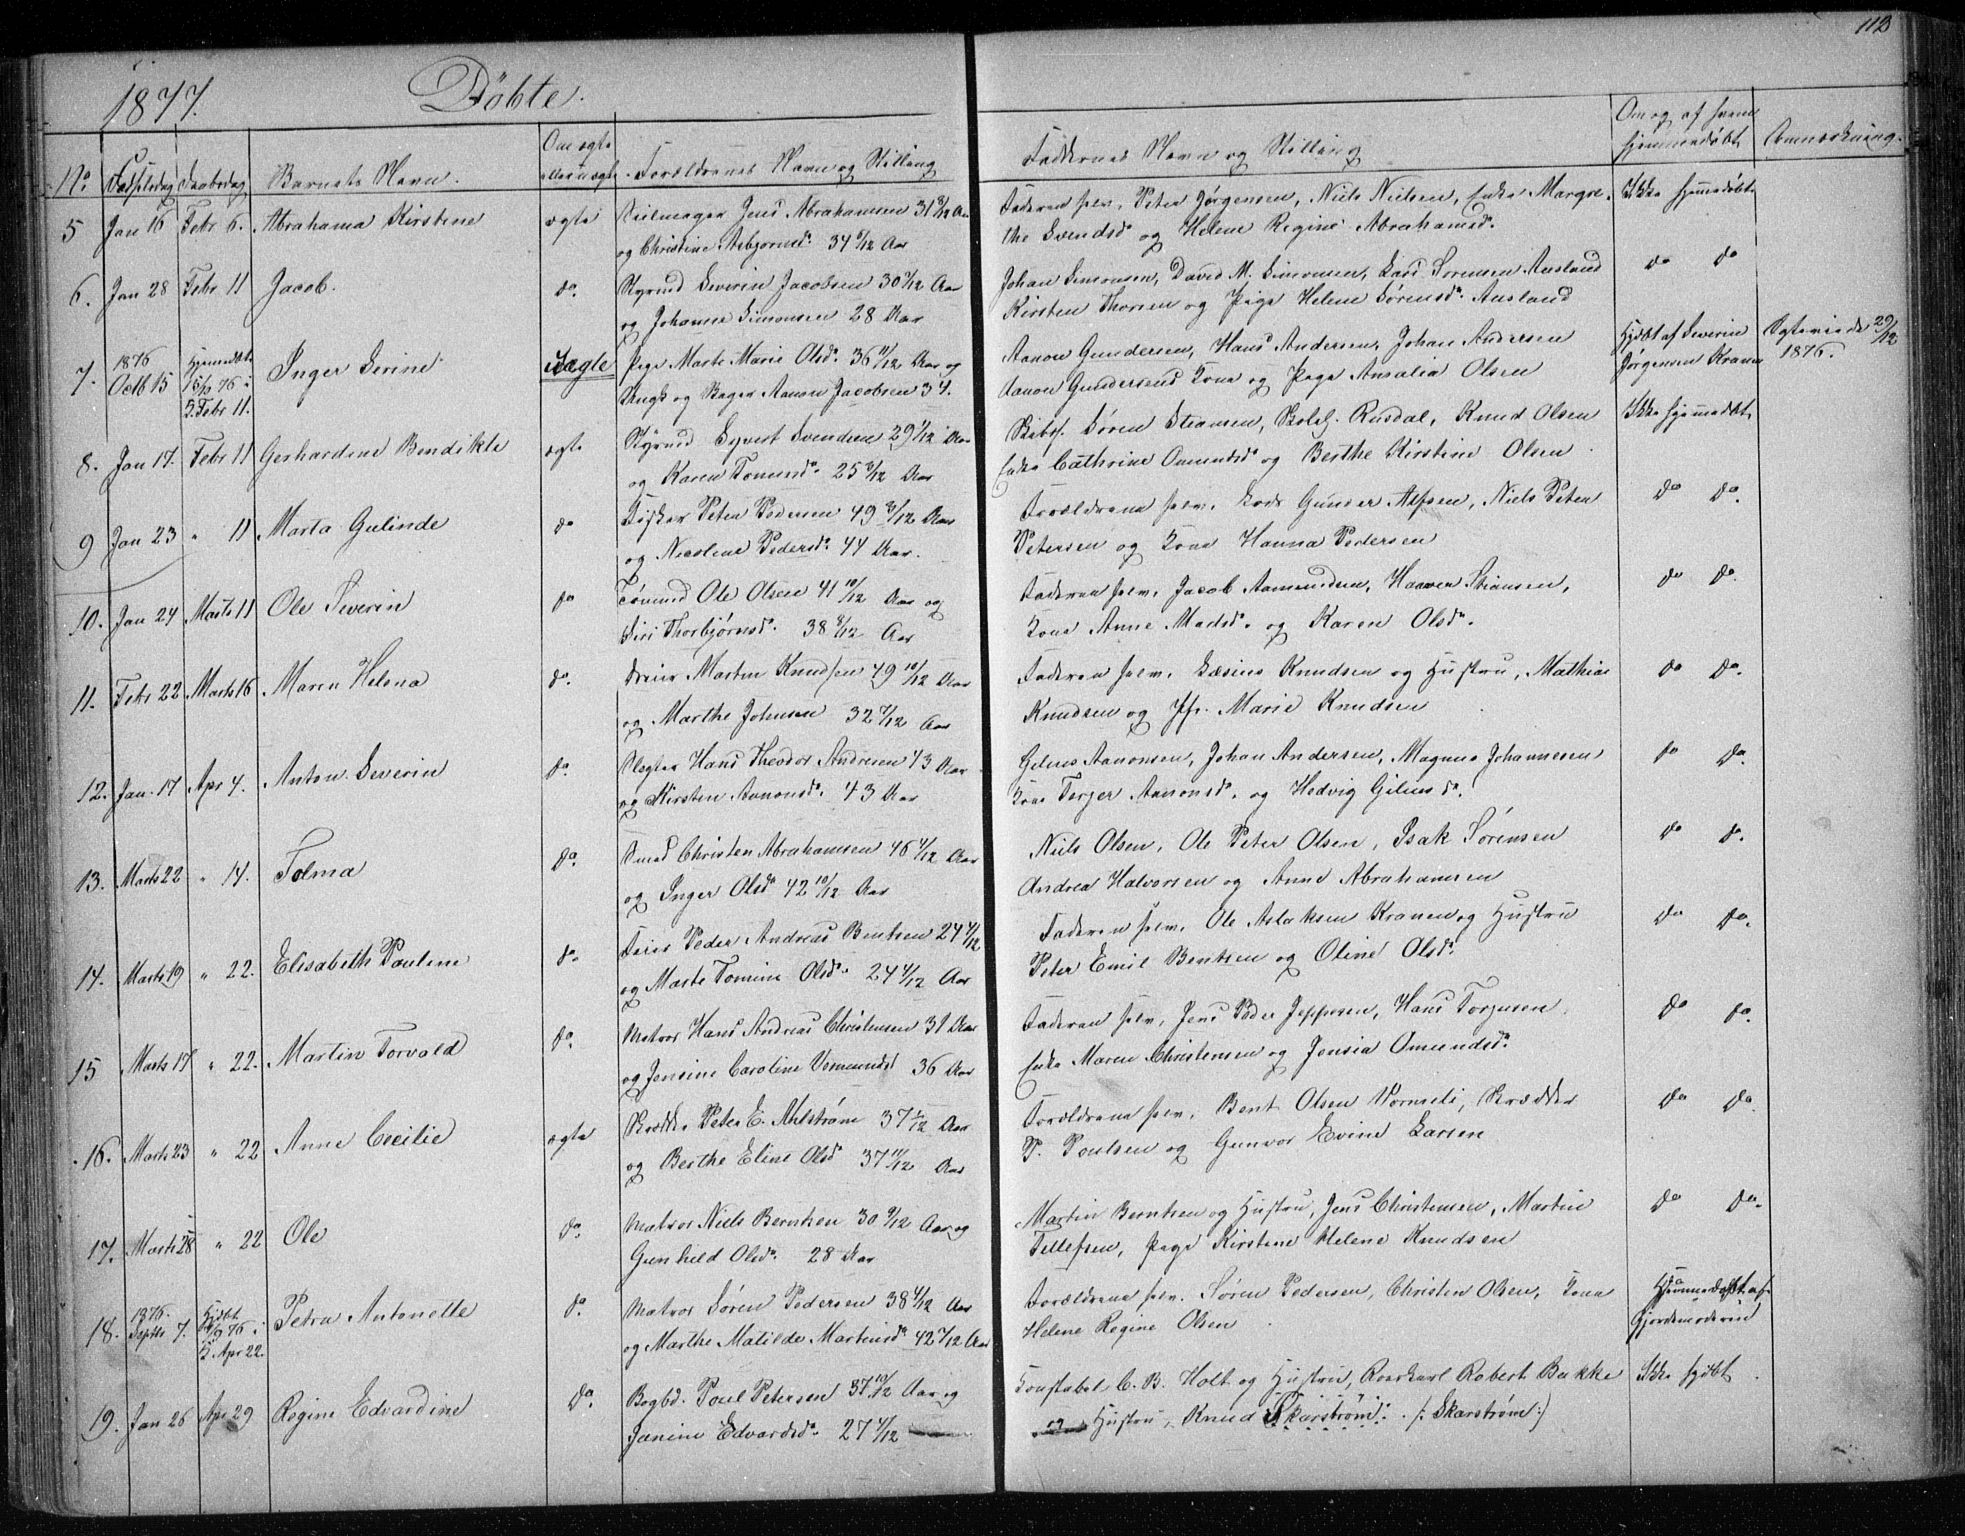 112
1877. Döbte.
No. Fødselsdag Daabsdag Barnets Navn. Om ægte eller uægte Forældrenes Navn og Stilling
Faddernes Navn og Stilling Om og af hvem hjemmedøbt Anmærkning.
5 Jan 16 Febr 6. Abrahama Kirstine ægte Seilmager Jens Abrahamsen 31 3/12 Aar
og Christine Asbjørnsd. 34 5/12 Aar
Faderen selv, Peter Jørgensen, Niels Nielsen, Enke Margre- Ikke hjemmedøbt
the Svendsd. og Helene Regine Abrahamsd.
6. Jan 28 Febr 11 Jacob. do. Styrmd Severin Jacobsen 30 Aar
og Johanne Simonsen 28 Aar
Johan Simonsen, David M. Simonsen, Lars Sørensen Ausland do do
Kirsten Thorsen og Pige Helene Sørensd. Ausland
7. 1876 Octb 15 Hjemmedøbt 76 i K. Febr 11. Inger Serine uægte Pige Marte Marie Olsd. 36 11/12 Aar og
Ungk og Bager Aanon Jacobsen 34.
Aanon Gundersen, Hans Andersen, Johan Andersen Hjdbt af Severin
Aanon Gundersens Kone og Pige Amalia Olsen Jørgensen Krane
Ægteviede 29/12 1876.
8. Jan 17. Febr 11 Gerhardine Bendikte ægte Styrmd Syvert Svendsen 29 Aar
og Karen Tomined. 25 3/12 Aar
Skibsf. Søren Steansen, Rusdal, Knud Olsen Ikke hjemmedbt
Enke Cathrine Omundsd og Berthe Kirstine Olsen
9 Jan 23 " 11 Marta Gulinde do Fisker Peter Pedersen 49 3/12 Aar
og Nicoline Pedersd. 44 Aar.
Forældrene selv, Lods Gunder Alfsen, Niels Peter do do.
Petersen og Kone Hanna Pedersen
10. Jan 24 Marts 11 Ole Severin do Tømmd Ole Olsen 41 10/12 Aar og
Siri Thorbjørnsd. 38 8/12 Aar
Faderen selv, Jacob Aamundsen, Haaver Stiansen, do do.
Kone Anne Madsd. og Karen Olsd.
11. Febr 22 Marts 16 Maren Helena do. Martin Knudsen 49 10/12 Aar
og Marthe Johnsen 32 7/12 Aar
Faderen selv, Knudsen og Hustru, Mathias do do.
Knudsen og Jfr. Marie Knudsen
12. Jan. 17 Apr 4. Anton Severin do. Slagter Hans Theodor Andresen 43 Aar
og Kirsten Aanonsd. 43 Aar
Gilius Aanonsen, Johan Andersen, Magnus Johannesen do do.
Kone Torger Aanonsd. og Hedvig Giliusd.
13. Marts 22 " 14. Tolma do. Smed Christen Abrahamsen 46 4/12 Aar
og Inger Olsd 42 10/12 Aar
Niels Olsen, Ole Peter Olsen, Isak Sørensen do do.
Andrea Halvorsen og Anne Abrahamsen
14. Marts 19 " 22. Elisabeth Pauline do. Peder Andreas Bentsen 24 4/12
og Marte Tomine Olsd. 24 4/12 Aar
Faderen selv, Ole Aslaksen Kranen og Hustru do do.
Peter Emil Bentsen og Oline Olsd.
15 Marts 17 " 22. Martin Torvald do. Matros Hans Andreas Christensen 31 Aar
og Jensine Caroline 36 Aar
Faderen selv, Jens Peder Jeppesen, Hans Torjusen do do.
Enke Maren Christensen og Jensia Omundsd.
16. Marts 23 " 22 Anne Cecilie ægte Skrædder Peter E. Ahlstrøm 37 1/12 Aar
og Berthe Eline Olsd 37 11/12 Aar
Forældrene selv, Bent Olsen Vormeli, Skrædder do do.
P. Poulsen og Gunvor Evine Larsen
17. Marts 28 " 22 Ole do. Matros Niels Berntsen 30 9/12 Aar og
Gunhild Olsd. 28 Aar
Martin Berntsen og Hustru, Jens Christensen, Martin do do.
Tellefsen, Pige Kirstine Helene Knudsen
18. 1876. Septbr 7. Hjdbt 76 i K Apr 22. Petra Antonette do. Matros Søren Pedersen 38 4/12 Aar
og Marthe Matilde Martinsd. 42 7/12 Aar
Forældrene selv. Søren Pedersen, Christen Olsen, Kone Hjemmedøbt af
Helene Regine Olsen Gjordemoderen
19. Jan 26 Apr 29 Regine Edvardine do. Bogbd. Poul Petersen 37 10/12 Aar og
Janine Edvardsd. 27 4/12
Konstabel C. B. Holt og Hustru, Roerkarl Robert Bakke Ikke hjdbt.
og Hustru, Knud Skarstrøm. (: Skarstrøm :)